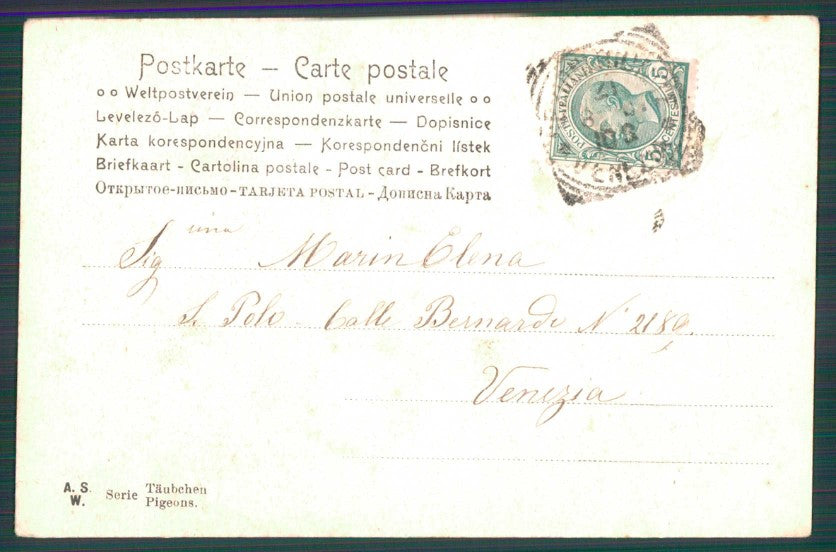 Postkarte – Carte postale
Weltpostverein – Union postale universelle
Levelező-Lap – Correspondenzkarte – Dopisnice
Karta korespondencyjna – Korespondenční lístek
Briefkaart - Cartolina postale - Post card - Brefkort
Открытое-письмо - TARJETA POSTAL - Дописна Карта
POSTE ITALIANE
CENTESIMI 5
VENEZIA
Sig una Marin Elena
S. Polo - Calle Bernardo N° 2189.
Venezia
A. S. W. Serie Täubchen
Pigeons.